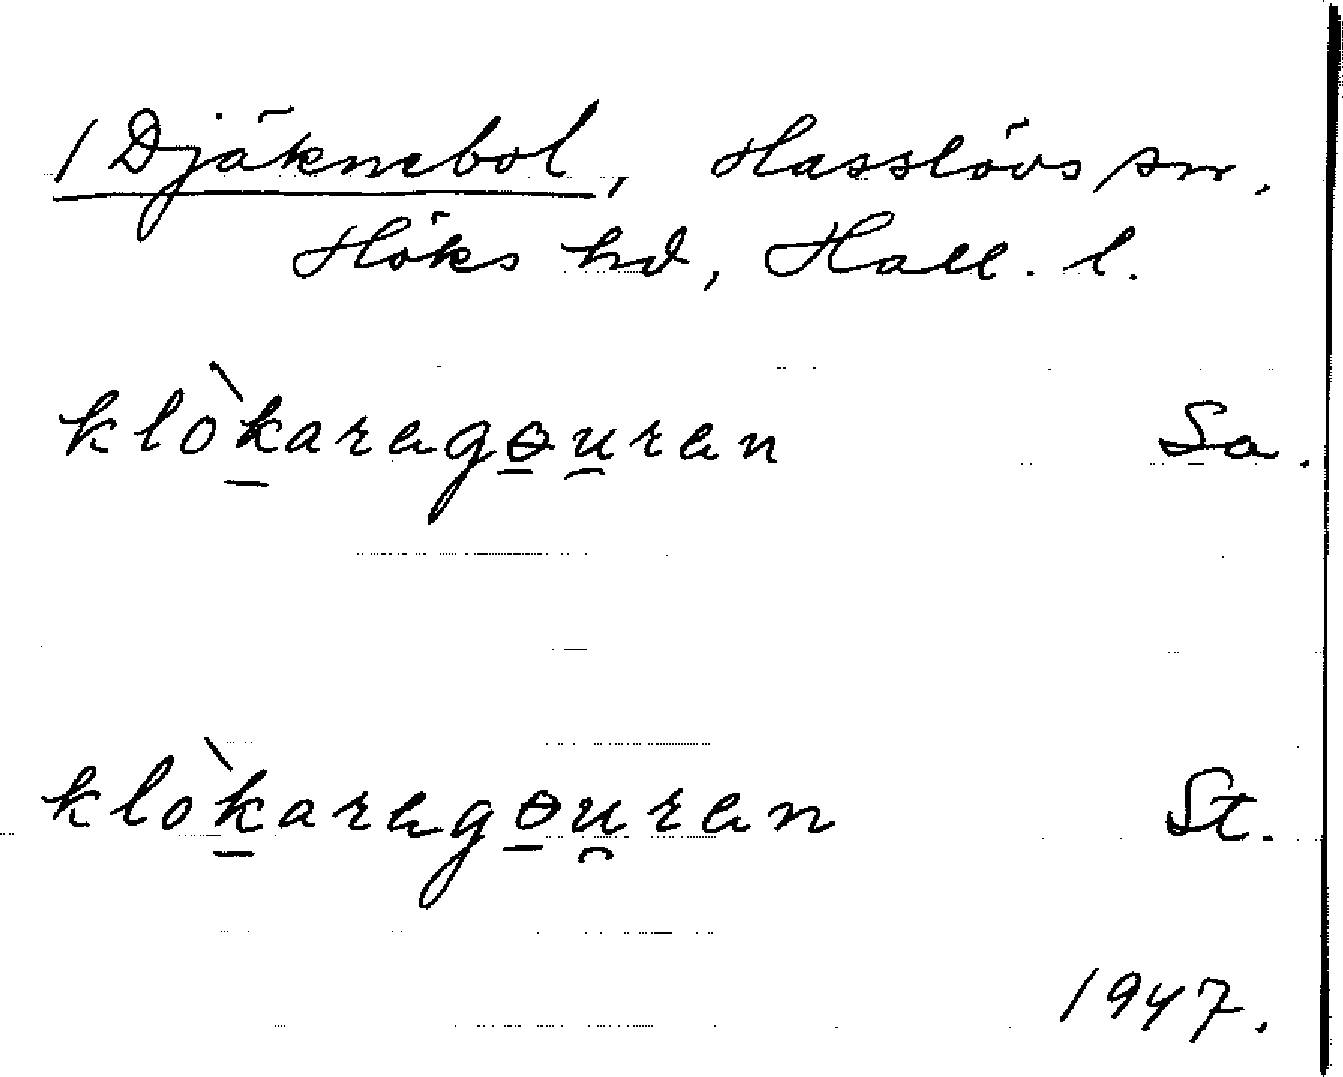 1 Djäknebol, Hasslövs sn,
Höks hd, Hall. l.
klòkaragɵu̯ran Sa.
klòkaragɵu̯ran St.
1947.